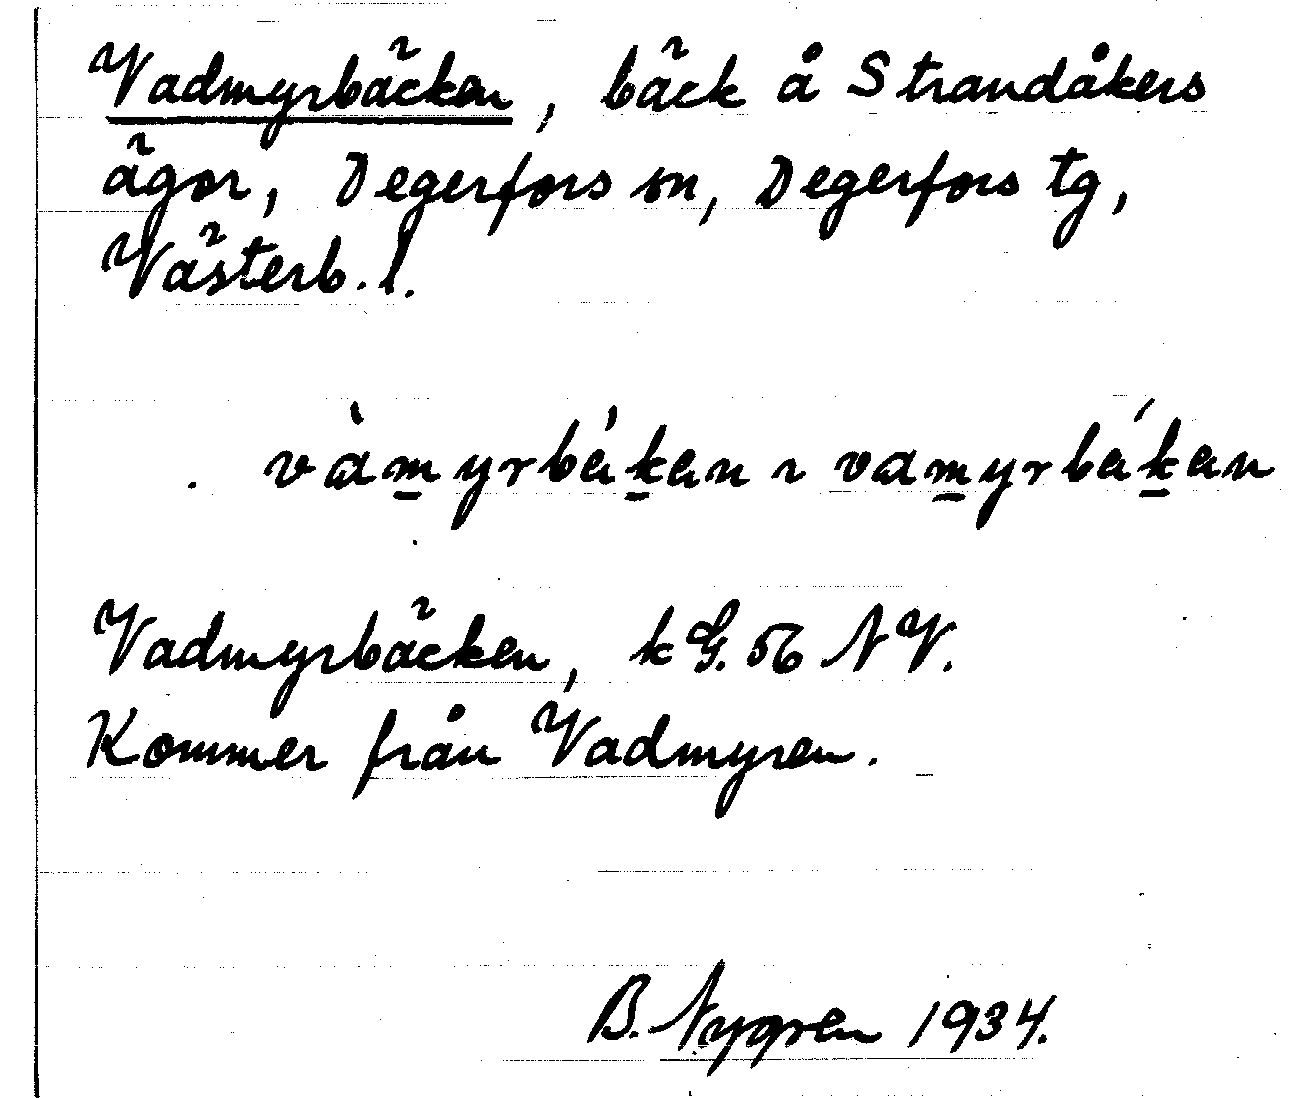 Vadmyrbäcken, bäck å Strandåkers
ägor, Degerfors sn, Degerfors tg,
Västerb. l.
vàm̲yrbák̲an ~ vam̲yrbák̲an
Vadmyrbäcken, kG. 56 NV.
Kommer från Vadmyren.
B. Nygren 1934.